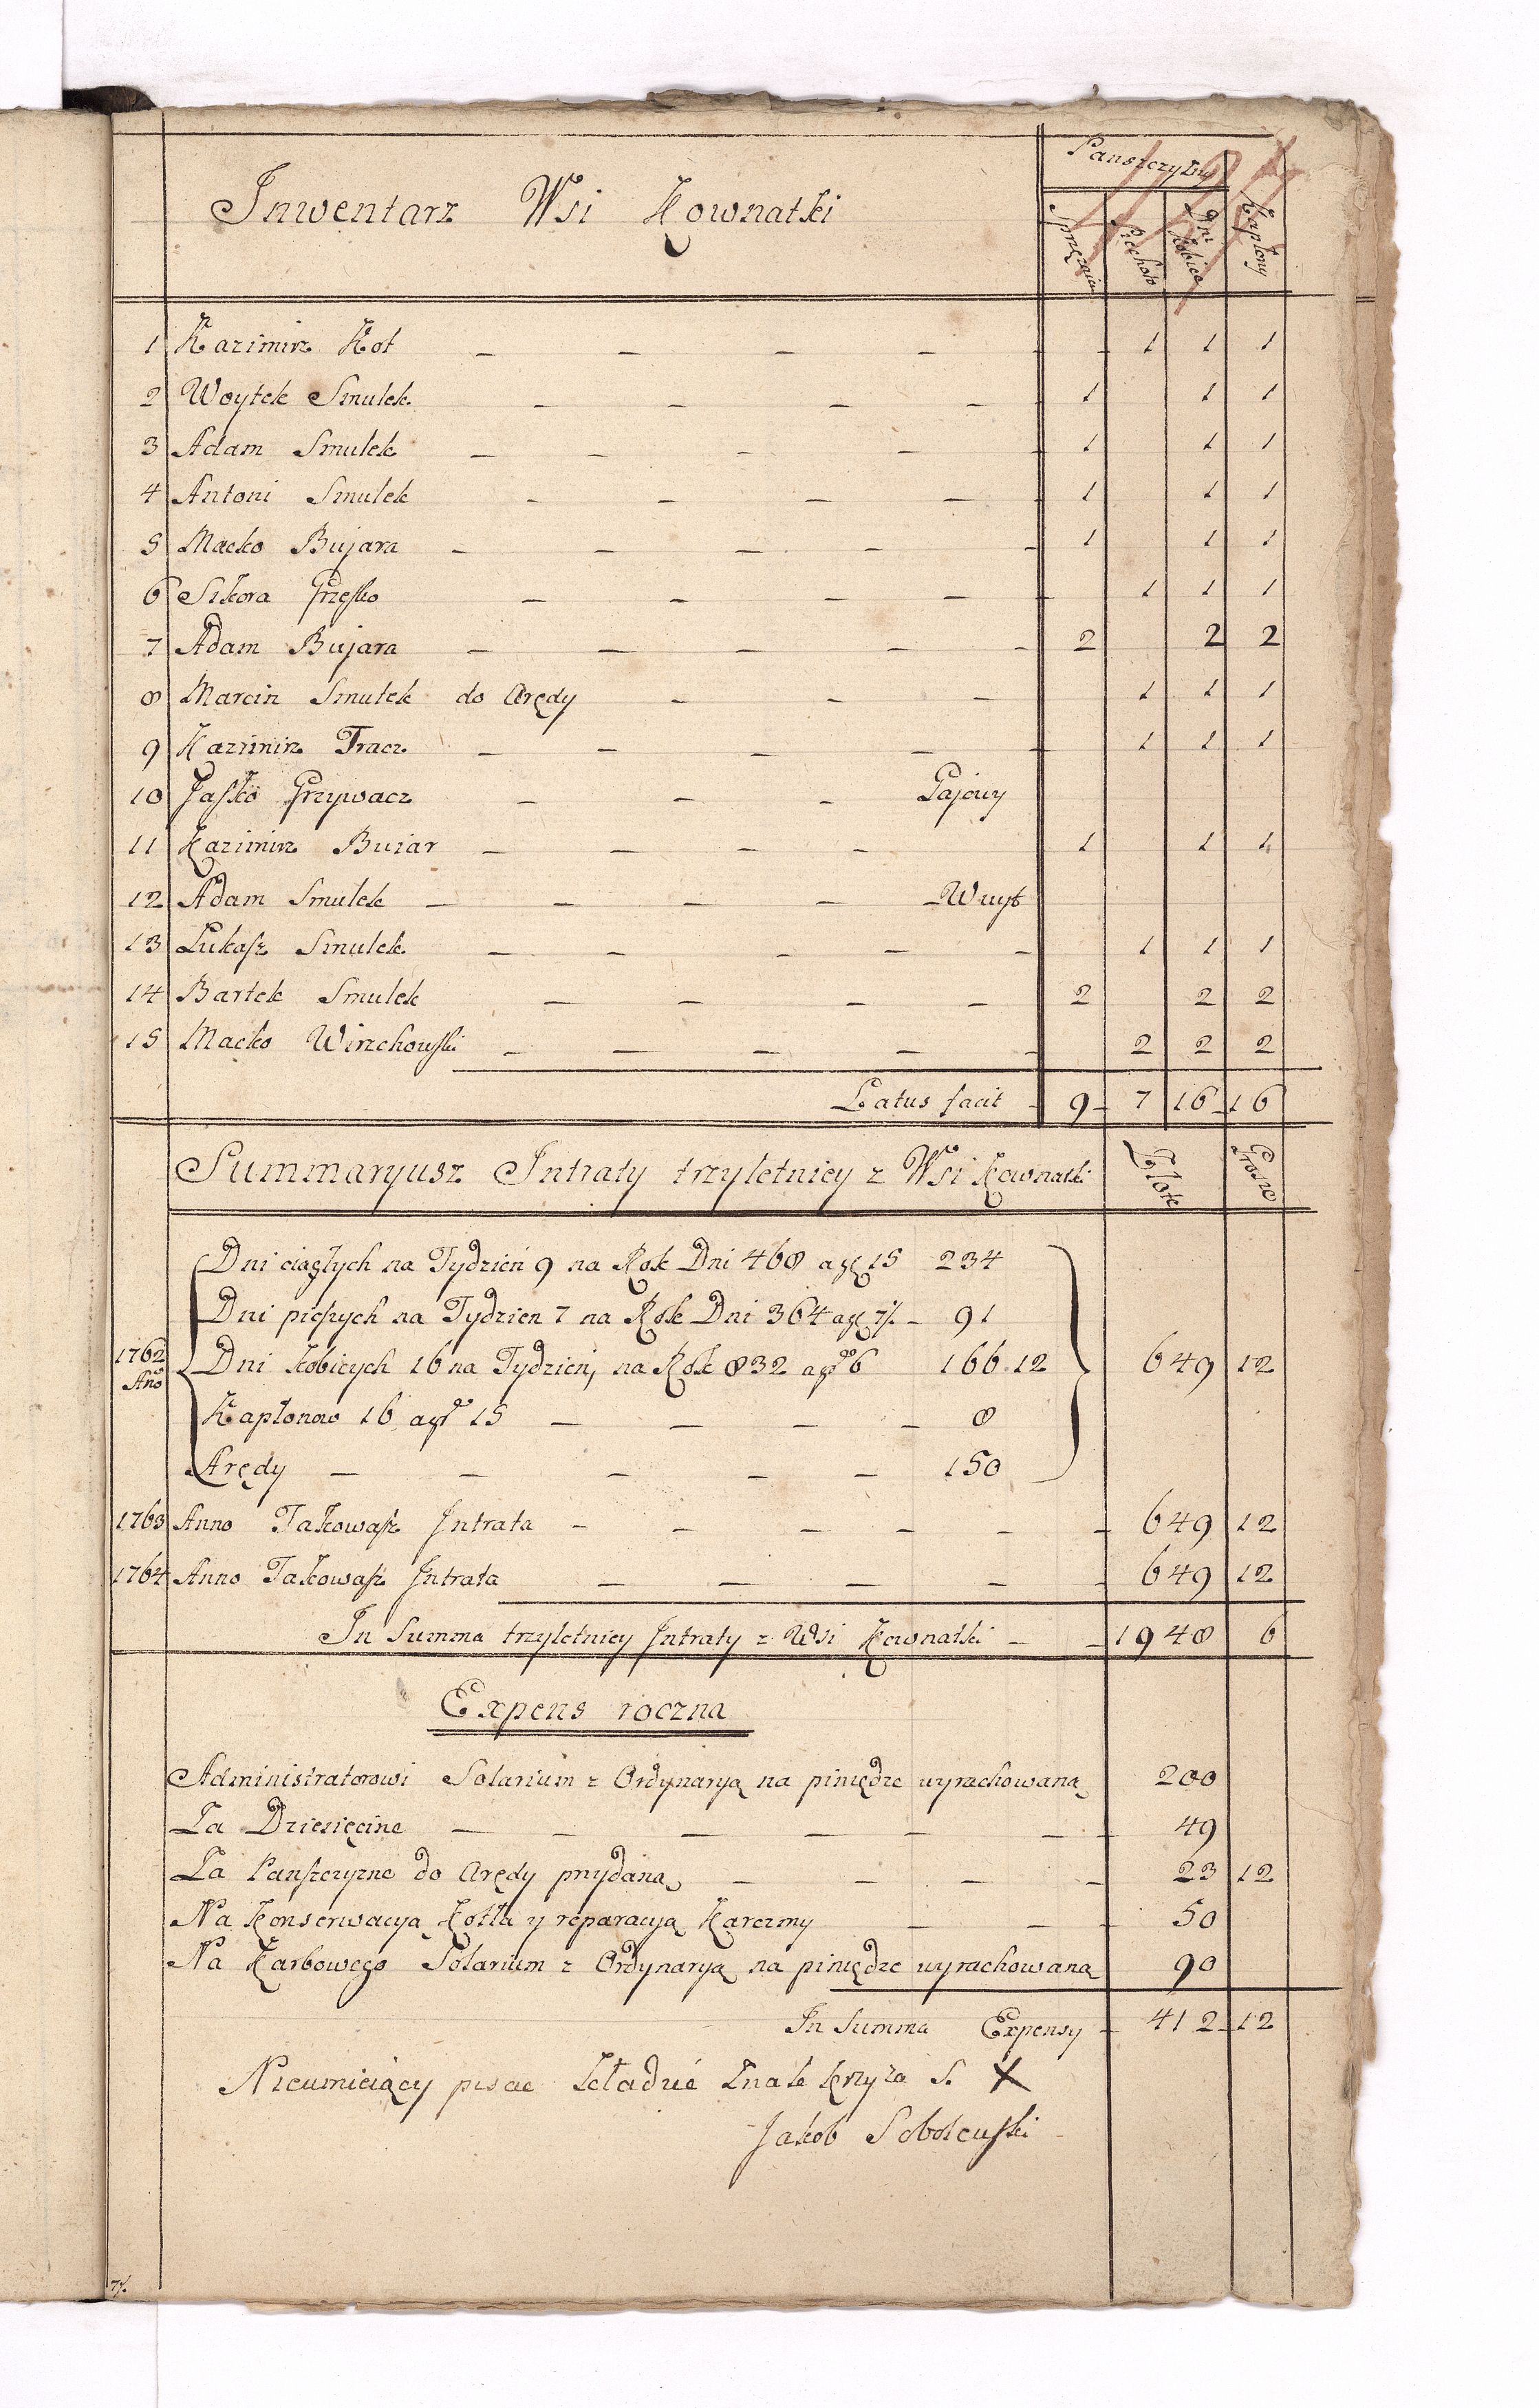 Inwentarz Wsi Kownatki
Panszczyzny
Sprzężaiu Piechoto Dni Kobice Kapłony
1 Kazimirz Kot — — — — - 1 1 1
2 Woytek Smulek — — — — - 1 1 1
3 Adam Smulek — — — — - 1 1 1
4 Antoni Smulek — — — — - 1 1 1
5 Macko Bujara — — — — - 1 1 1
6 Sikora Grzesko — — — — - 1 1 1
7 Adam Bujara — — — — - 2 2 2
8 Marcin Smulek do Arędy — — — 1 1 1
9 Kazimirz Tracz — — — — - 1 1 1
10 Jasko Grzywacz — — — Gajowy
11 Kazimirz Buiar — — — — 1 1 1
12 Adam Smulek — — — — Wuyt
13 Lukasz Smulek — — — — - 1 1 1
14 Bartek Smulek — — — — 2 2 2
15 Macko Wirzchowski — — — — - 2 2 2
Latus facit - 9 - 7 16 - 16
Summaryusz Intraty trzyletniey z Wsi Kownatki Złote Grosze
Dni ciągłych na Tydzień 9 na Rok Dni 468 a gr 15 234
Dni pieszych na Tydzien 7 na Rok Dni 364 a gr 7½ - 91
1762 Dni kobicych 16 na Tydzień, na Rok 832 a gr 6 166.12 649 12
Ano
Kapłonow 16 a gr 15 — — — — 8
Arędy — — — — — 150
1763 Anno Takowasz Intrata - - - - - - 649 12
1764 Anno Takowasz Intrata — — — — - 649 12
In Summa trzyletniey Intraty z Wsi Kownatki - - 1948 6
Expens roczna
Administratorowi Solarium z Ordynaryą na piniędze wyrachowaną 200
Za Dziesięcine — — — — — — 49
Za Panszczyzne do Arędy przydaną — — — - 23 12
Na Konserwacyą Kotła y reparacyą Karczmy — — - 50
Na Karbowego Solarium z Ordynaryą na piniędze wyrachowaną 90
In Summa Expensy - 412 - 12
Nieumieiący pisac kładzie Znak krzyża S. X
Jakob Sobolewski